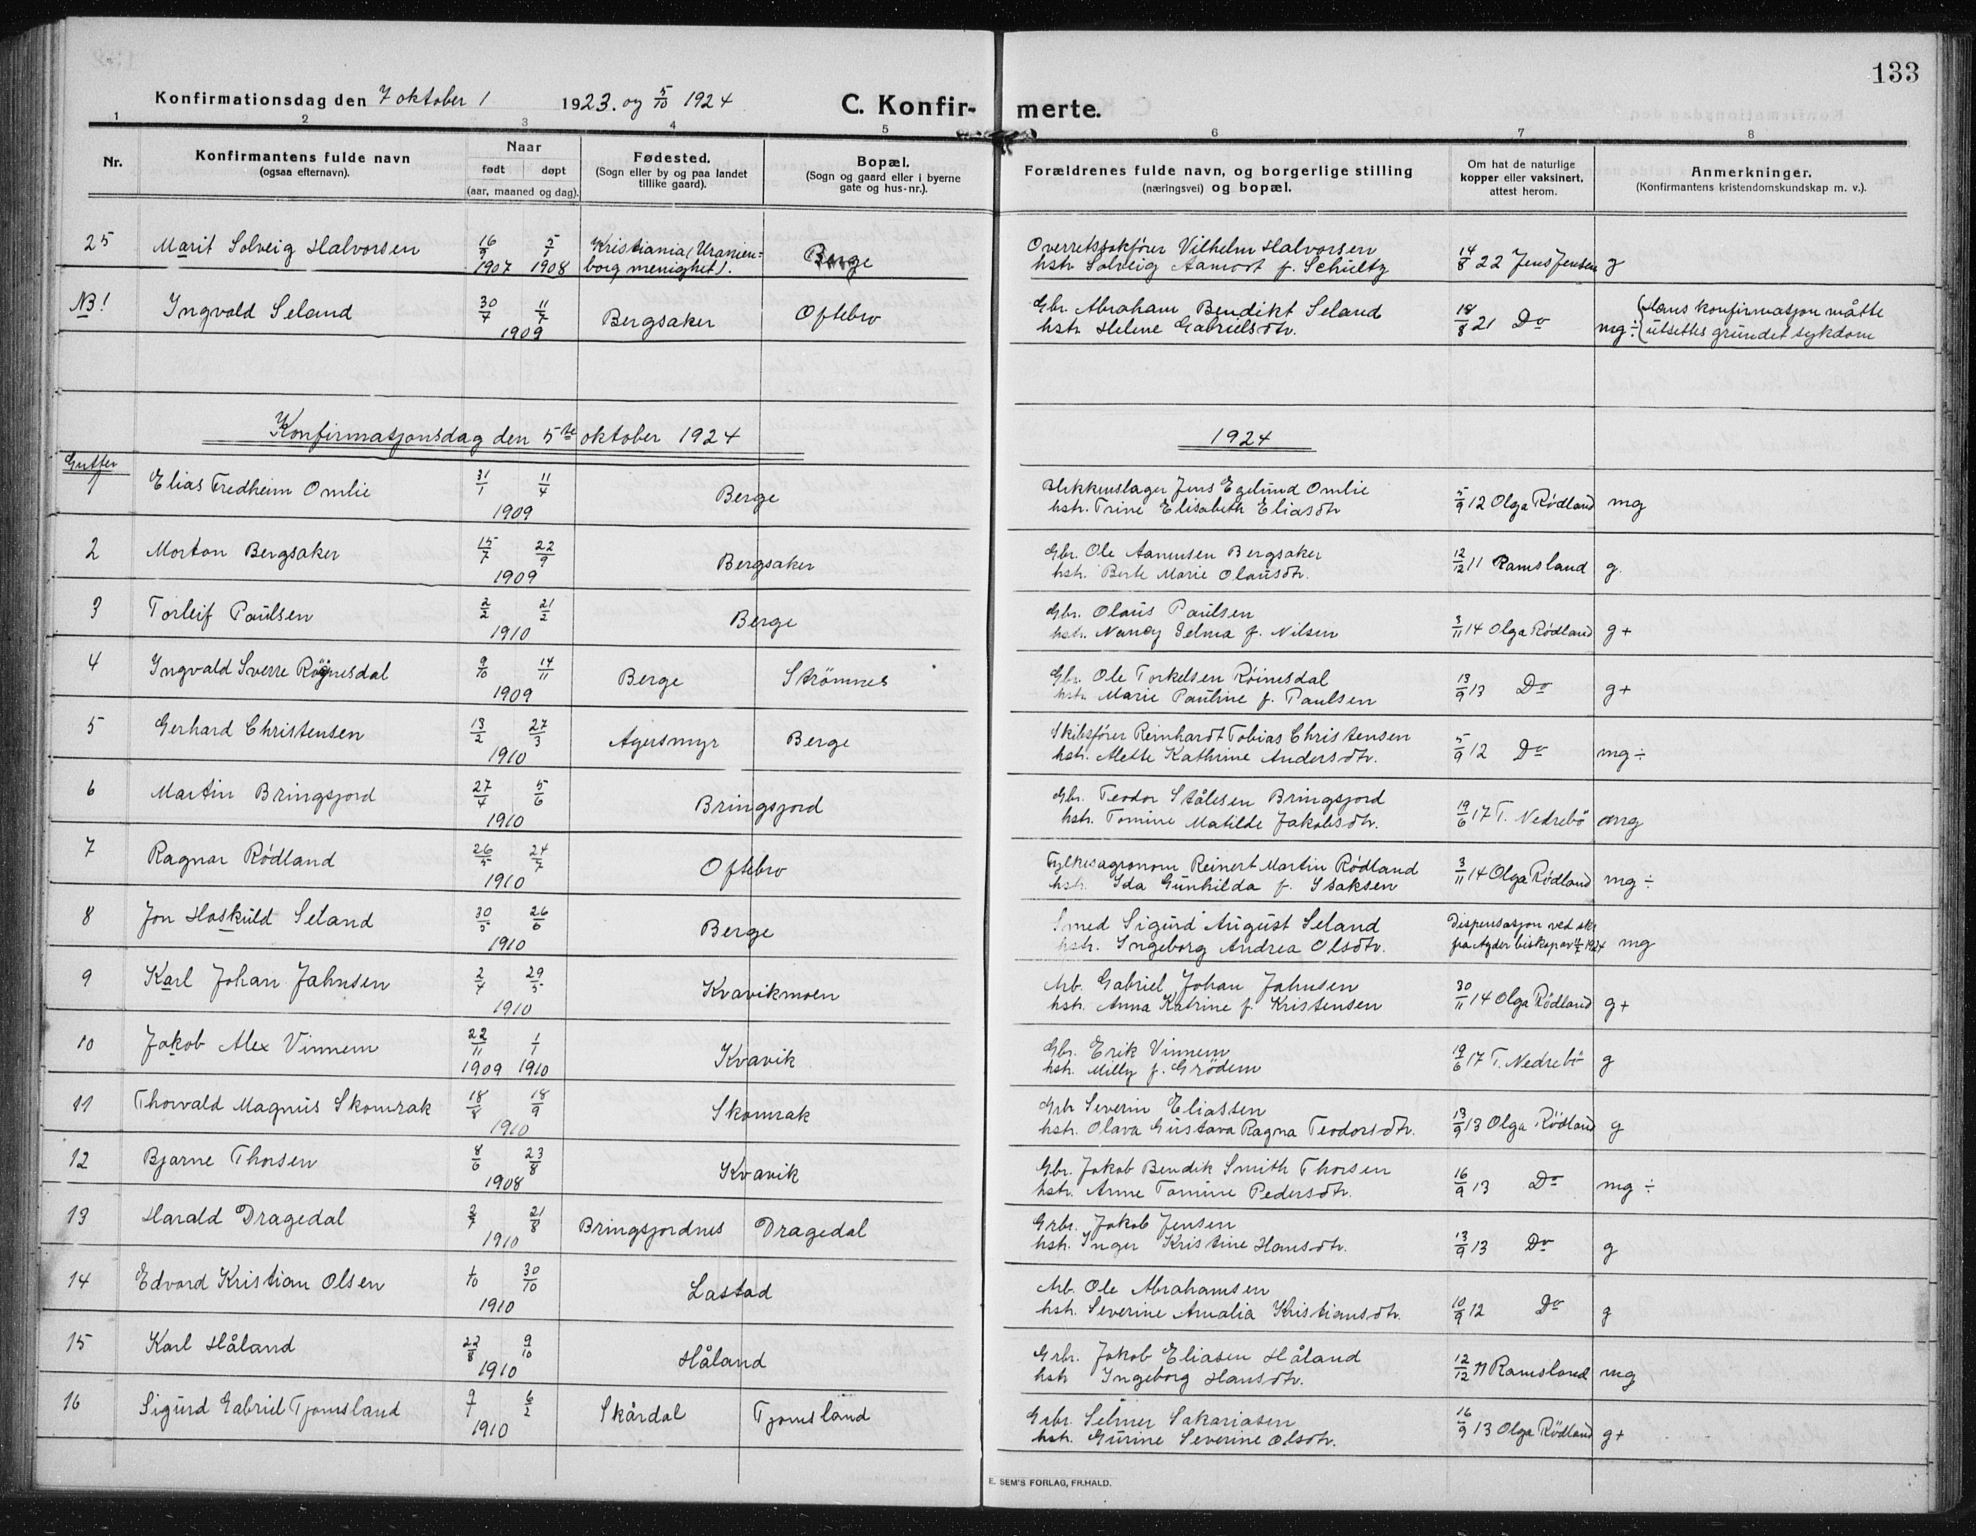 133
Konfirmationsdag den 7 oktober 1 1923. og 5/10 1924
C. Konfir- merte.
1 2 3 4 5 6 7 8
Nr.
Konfirmantens fulde navn
(ogsaa efternavn).
Naar
født døpt
(aar, maaned og dag).
Fødested.
(Sogn eller by og paa landet
tillike gaard).
Bopæl.
(Sogn og gaard eller i byerne
gate og hus-nr.).
Forældrenes fulde navn, og borgerlige stilling
(næringsvei) og bopæl.
Om hat de naturlige
kopper eller vaksinert,
attest herom.
Anmerkninger.
(Konfirmantens kristendomskundskap m. v.).
25 Marit Solveig Halvorsen 16/9 1907 5/1 1908 Kristiania (Uranien= Berge Overretssakfører Vilhelm Halvorsen 14/8 22 Jens Jensen g
borg menighet). hstr Solveig Aamodt f. Schultz
NB! Ingvald Seland 30/4 11/7 Bergsaker Oftebro Gbr. Abraham Bendikt Seland 18/8 21 Do mg÷ {Hans konfirmasjon måtte
1909 hstr Helene Gabrielsdtr. utsettes grundet sykdom
Konfirmasjonsdag den 5te oktober 1924 1924
Gutter
1 Elias Fredheim Omlie 31/1 11/4 Berge Blikkenslager Jens Egelund Omlie 5/9 12 Olga Rødland mg
1909 hstr. Trine Elisabeth Eliasdtr
2 Morton Bergsaker 15/7 22/9 Bergsaker Gbr. Ole Aanensen Bergsaker 12/12 11 Ramsland g.
1909 hstr. Berte Marie Olausdtr.
3 Torleif Paulsen 2/2 21/2 Berge Gbr. Olaus Paulsen 3/11 14 Olga Rødland g+
1910 hstr. Nancy Selma f. Nilsen
4 Ingvald Sverre Røynesdal 9/10 14/11 Berge Strømnes Gbr. Ole Torkelsen Røinesdal 13/9 13 Do g+
1909 hstr. Marie Pauline f. Paulsen
5 Gerhard Christensen 13/2 27/3 Agersmyr Berge Skibsfører Reinhardt Tobias Christensen 5/9 12 Do mg÷
1910 hstr. Mette Kathrine Andersdtr.
6 Martin Bringsjord 27/4 5/6 Bringsjord Gbr. Teodor Stålesen Bringsjord 19/6 17 T. Nedrebö mg
1910 hstr. Tomine Matilde Jakobsdtr.
7 Ragnar Rødland 26/5 24/7 Oftebro Fylkesagronom Reinert Martin Rødland 3/11 14 Olga Rødland mg ÷
1910 hstr. Ida Gunhilda f. Isaksen
8 Jon Hoskuld Seland 30/5 26/6 Berge Smed Sigurd August Seland Dispensasjon ved skr
1910 hstr. Ingeborg Andrea Olsdtr. fra Agder biskop av 1924 mg
9 Karl Johan Jahnsen 2/4 29/5 Kvavikmoen Arb. Gabriel Johan Jahnsen 30/11 14 Olga Rødland g+
1910 hstr. Anna Katrine f. Kristensen
10 Jakob Alex Vinnem 22/11 1/1 Kvavik Gbr. Erik Vinnem 19/6 17 T. Nedrebö g
1909 1910 hstr. Milly f. Grödem
11 Thorvald Magnus Skomrak 18/8 18/9 Skomrak Grbr Severin Eliassen 13/9 13 Olga Rödland g
1910 hstr. Olava Gustava Ragna Teodorsdtr.
12 Bjarne Thorsen 8/6 23/8 Kvavik Gbr. Jakob Bendik Smith Thorsen 16/9 13 Do mg ÷
1908 hstr. Anne Tomine Pedersdtr.
13 Harald Dragedal 3/7 21/8 Bringsjordnes Dragedal Grbr. Jakob Jensen 13/9 13 Do g
1910 hstr. Inger Kristine Hansdtr.
14 Edvard Kristian Olsen 1/10 30/10 Lastad Arb. Ole Abrahamsen 10/9 12 Do g
1910 hstr. Severine Amalia Kristiansdtr.
15 Karl Håland 22/8 9/10 Håland Grbr. Jakob Eliasen Håland 12/12 11 Ramsland mg
1910 hstr Ingeborg Hansdtr.
16 Sigurd Gabriel Tjomsland 7/1 6/2 Skårdal Tjomsland Grbr. Selmer Sakariasen 16/9 13 Olga Rödland g+
1910 hstr. Gurine Severine Olsdtr.
E. SEM'S FORLAG, FR.HALD.